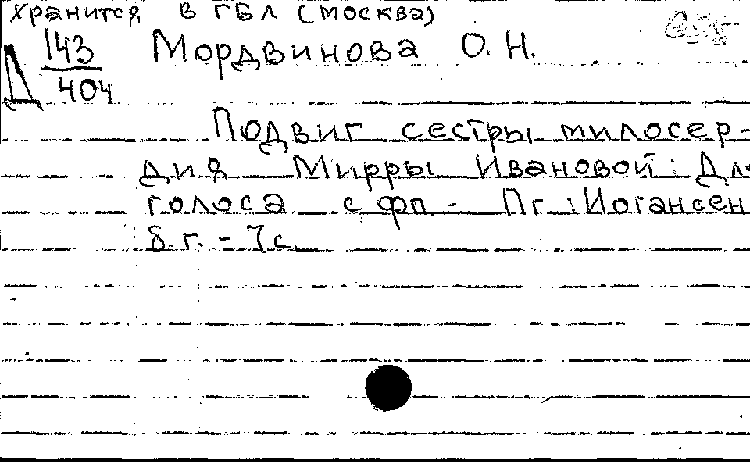 хранится в ГБЛ (Москва)
Д 143/404 Мордвинова О. Н.
Подвиг сестры милосер-
дия Мирры Ивановой: Дл
голоса с фп - Пг.: Иогансен
б.г. - 7с.